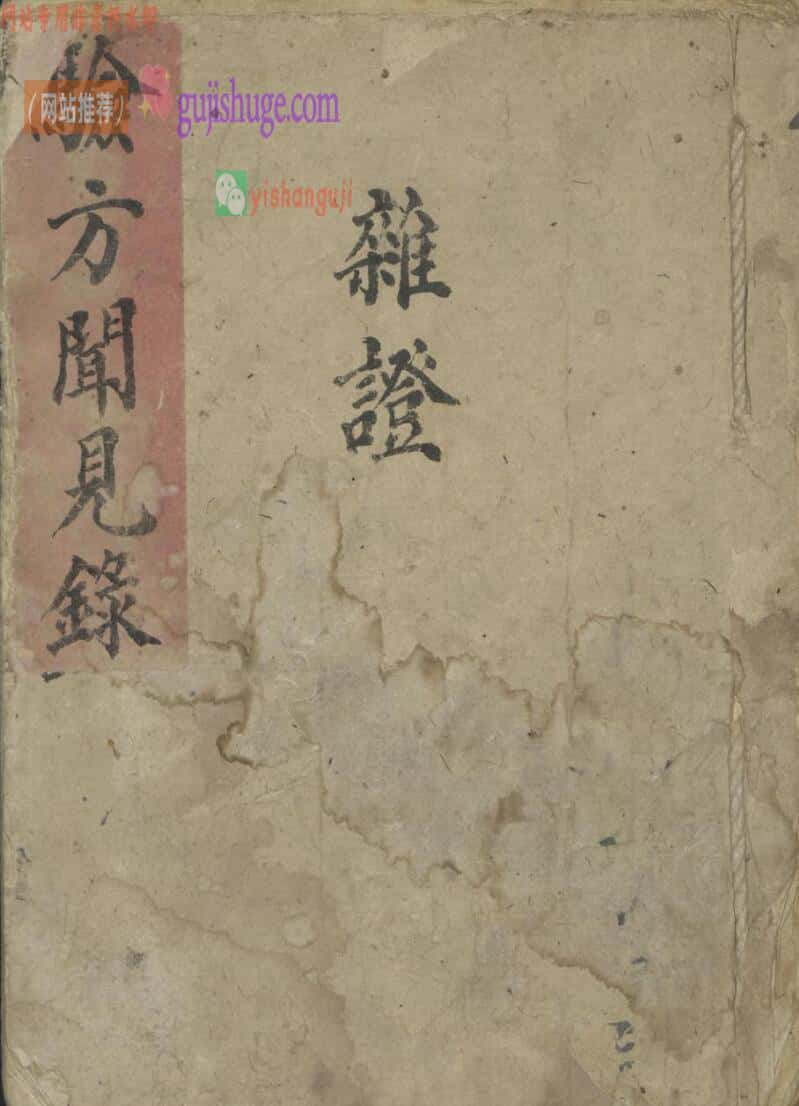 （网站推荐）
gujishuge.com
yishanguji
雜證
驗方聞見錄